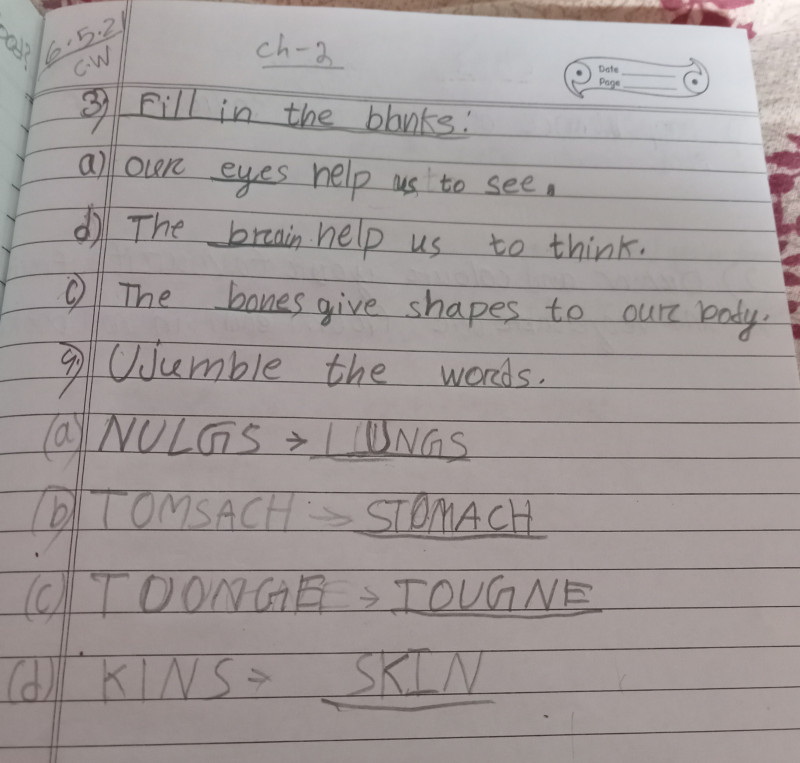 6.5.21
C.W
ch-2
Date
Page
3) Fill in the blanks:
a) our eyes help us to see.
d) The brain help us to think.
c) The bones give shapes to our body.
9) Ujumble the words.
(a) NULGS → LUNGS
(b) TOMSACH → STOMACH
(c) TOONGE → TOUGNE
(d) KINS → SKIN